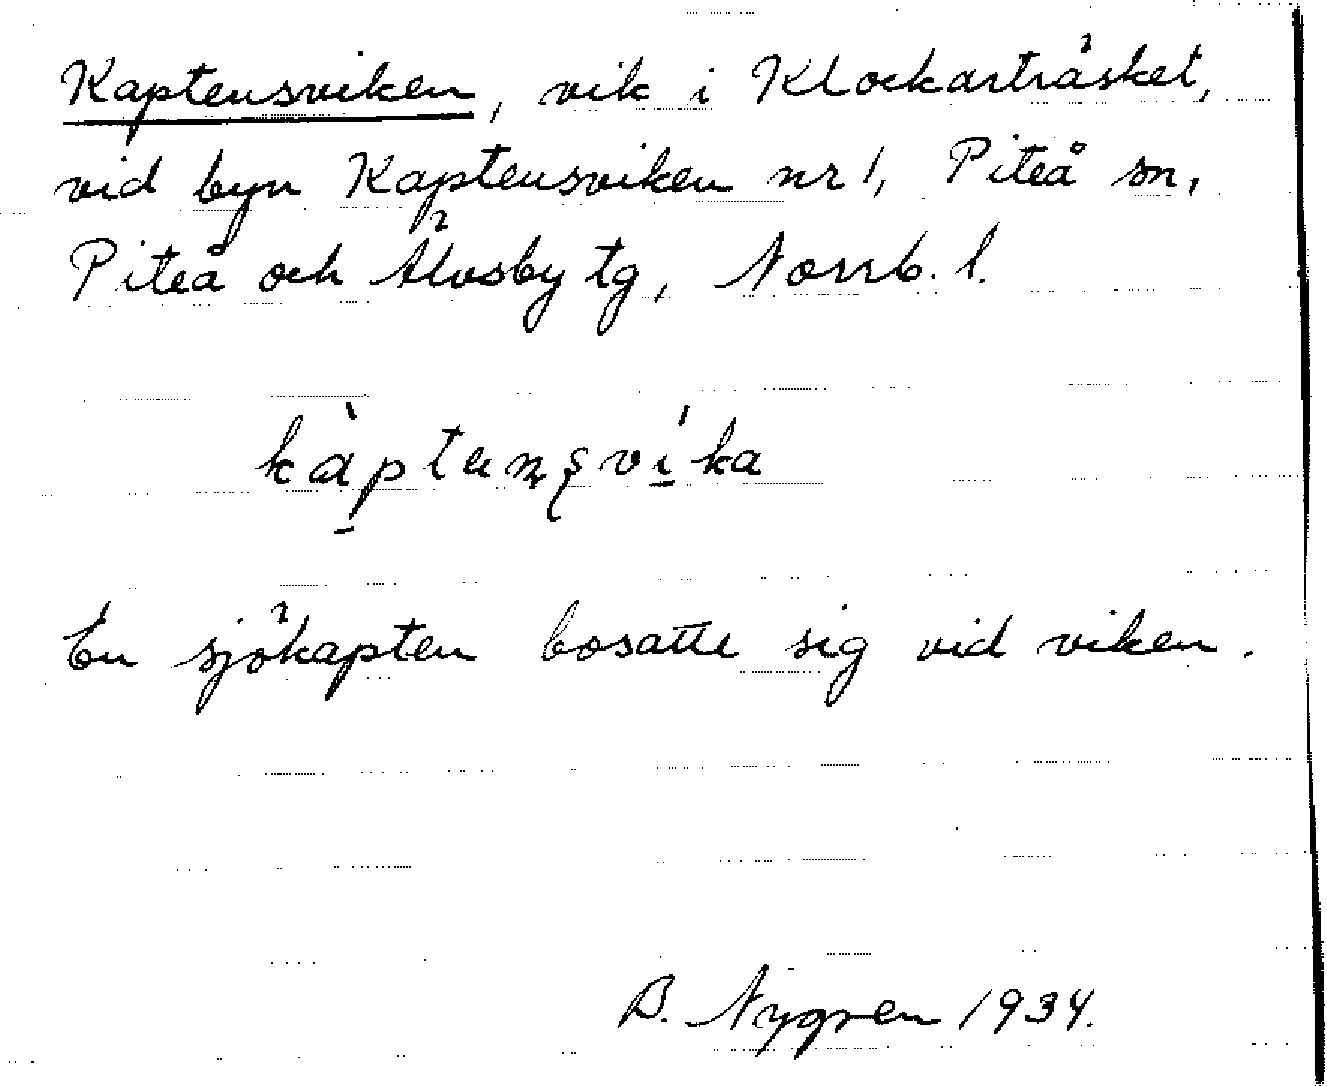 Kaptensviken, vik i Klockarträsket,
vid byn Kaptensviken nr 1, Piteå sn,
Piteå och Älvsby tg, Norrb. l.
kàptenṣví̱ka
En sjökapten bosatte sig vid viken.
B. Nygren 1934.